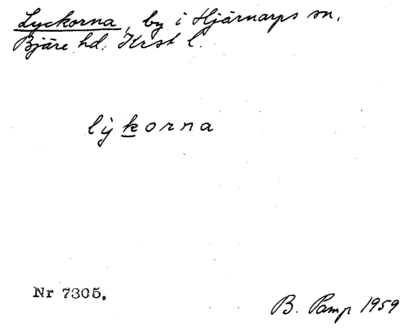 Lyckorna, by i Hjärnarps sn,
Bjäre hd. Krst l.
lỳkorna
Nr 7305.
B. Pamp 1959